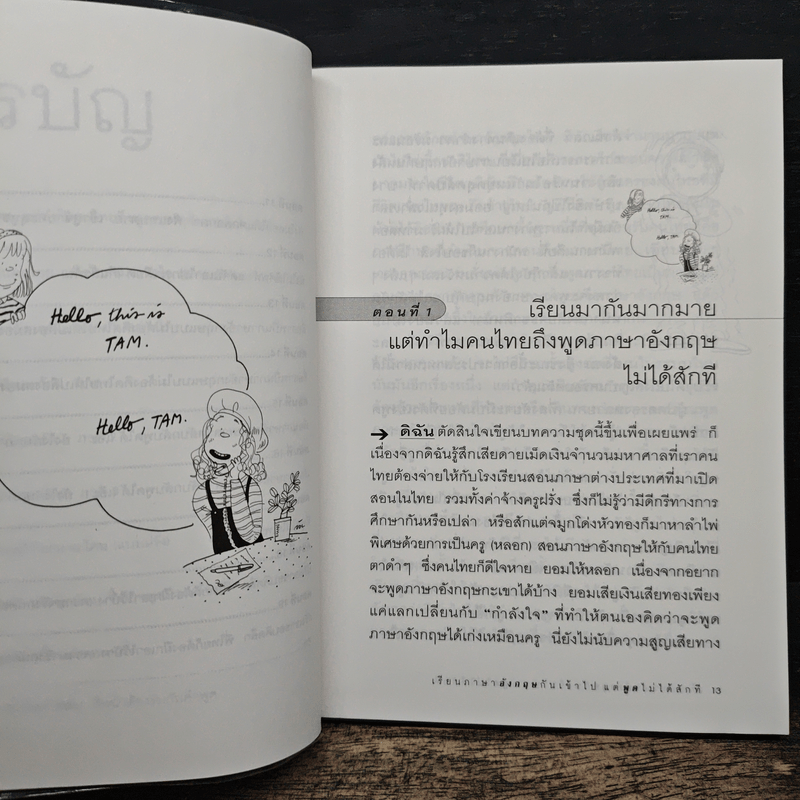 รบัญ
Hello this is
TAM.
Hello, TAM.
ตอนที่ 1
เรียนมากันมากมาย
แต่ทำไมคนไทยถึงพูดภาษาอังกฤษ
ไม่ได้สักที
➔ ดิฉัน ตัดสินใจเขียนบทความชุดนี้ขึ้นเพื่อเผยแพร่ ก็
เนื่องจากดิฉันรู้สึกเสียดายเม็ดเงินจำนวนมหาศาลที่เราคน
ไทยต้องจ่ายให้กับโรงเรียนสอนภาษาต่างประเทศที่มาเปิด
สอนในไทย รวมทั้งค่าจ้างครูฝรั่ง ซึ่งก็ไม่รู้ว่ามีดีกรีทางการ
ศึกษากันหรือเปล่า หรือสักแต่จมูกโด่งหัวทองก็มาหาลำไพ่
พิเศษด้วยการเป็นครู (หลอก) สอนภาษาอังกฤษให้กับคนไทย
ตาดำๆ ซึ่งคนไทยก็ดีใจหาย ยอมให้หลอก เนื่องจากอยาก
จะพูดภาษาอังกฤษกะเขาได้บ้าง ยอมเสียเงินเสียทองเพียง
แค่แลกเปลี่ยนกับ “กำลังใจ” ที่ทำให้ตนเองคิดว่าจะพูด
ภาษาอังกฤษได้เก่งเหมือนครู นี่ยังไม่นับความสูญเสียทาง
เรียนภาษาอังกฤษกันเข้าไป แต่พูดไม่ได้สักที 13